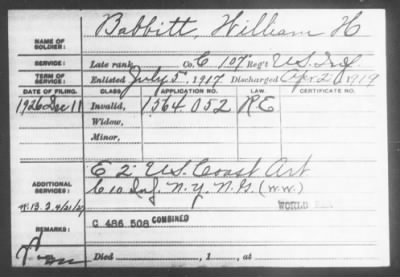 NAME OF SOLDIER: Babbitt, William H
SERVICE: Late rank, Co. C 107 Reg't U.S. Inf
TERM OF SERVICE: Enlisted July 5, 1917 Discharged Apr 2 1919
DATE OF FILING. CLASS. APPLICATION NO. LAW. CERTIFICATE NO.
1926 Dec 11 Invalid, 1564 052 R E
Widow,
Minor,
ADDITIONAL SERVICES: E 2 U.S. Coast Art
C 10 Inf N.Y. N.G. (W.W.)
WORLD
REMARKS: C 486 508 COMBINED
Died , 1 , at